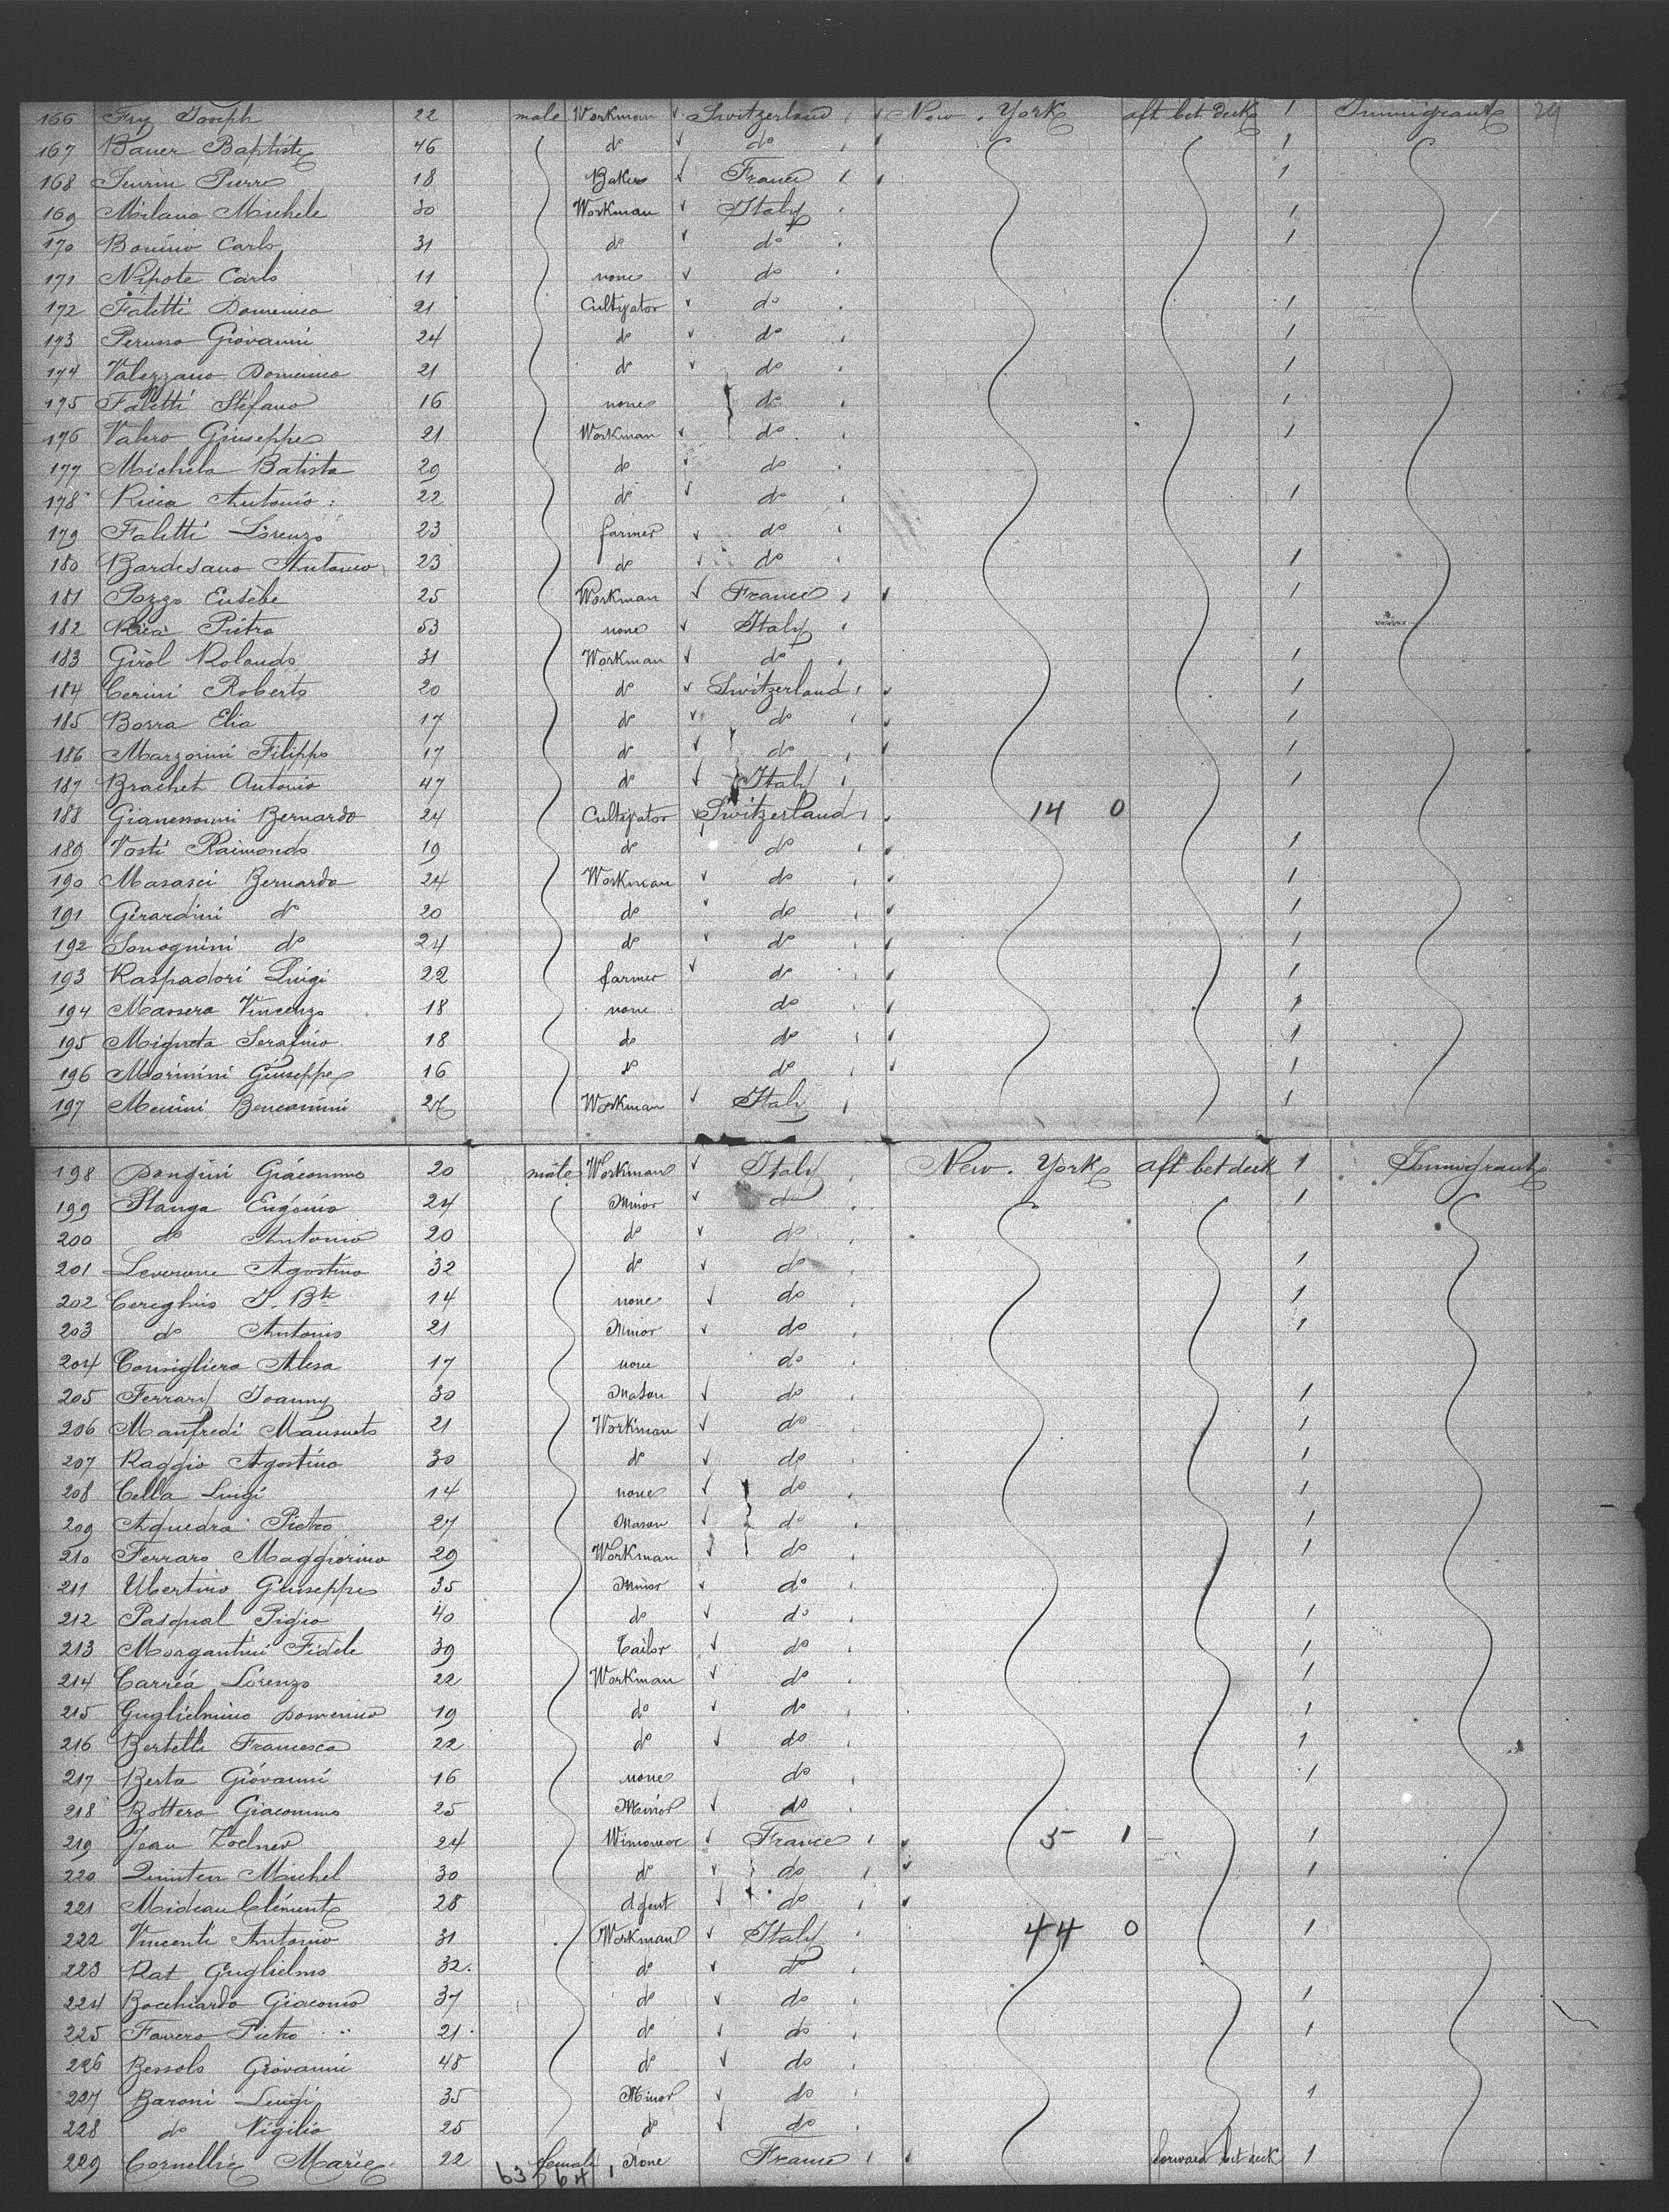 166 Fry Joseph 22 male Workman Switzerland New York aft bet deck 1 Immigrant 29
167 Bauer Baptiste 46 do do 1
168 Pierre 18 Baker France 1
169 Milano Michele 30 Workman Italy 1
170 Bonino Carlo 31 do do 1
171 Nipote Carlo 11 none do
172 Faletti Domenico 21 Cultivator do 1
173 Perusso Giovanni 24 do do 1
174 Valezzano Domenico 21 do do 1
175 Faletti Stefano 16 none do 1
176 Valero Giuseppe 21 Workman do 1
177 Michela Batista 29 do do
178 Ricca Antonio 22 do do 1
179 Faletti Lorenzo 23 farmer do
180 Bardesano Antonio 23 do do 1
181 Pozzo Eusèbe 25 Workman France 1
182 Pietro 53 none Italy
183 Girol Rolando 31 Workman do 1
184 Cerini Roberto 20 do Switzerland 1
185 Borra Elia 17 do do 1
186 Marzorini Filippo 17 do do 1
187 Brachet Antonio 47 do Italy 1
188 Bernardo 24 Cultivator Switzerland 14 0
189 Vosti Raimondo 19 do do 1
190 Masasci Bernardo 24 Workman do 1
191 Gerardini do 20 do do 1
192 Sonognini do 24 do do 1
193 Raspadori Luigi 22 farmer do 1
194 Massera Vincenzo 18 none do 1
195 Miqueta Serafino 18 do do 1
196 Morinini Giuseppe 16 do do 1
197 Menini 27 Workman Italy 1
198 Dongini Giacommo 20 male Workman Italy New York aft bet deck 1 Immigrant
199 Stanga Eugénio 24 Minor do 1
200 do Antonio 20 do do
201 Leverone Agostino 32 do do 1
202 Cereghino J. Bte 14 none do 1
203 do Antonio 21 Minor do 1
204 Consigliero Alesa 17 none do
205 Ferrary Joanny 30 Mason do 1
206 Manfredi Mansueto 21 Workman do 1
207 Raggio Agostino 30 do do 1
208 Cella Luigi 14 none do 1
209 Aquedro Pietro 27 Mason do 1
210 Ferraro Maggiorino 29 Workman do 1
211 Ubertino Giuseppe 35 Minor do
212 Pasqual Pigio 40 do do 1
213 Morgantini Fidèle 39 Tailor do 1
214 Carréa Lorenzo 22 Workman do 1
215 Guglielmino Domenico 19 do do 1
216 Bertelli Francesco 22 do do 1
217 Berta Giovanni 16 none do 1
218 Bottero Giacommo 25 Minor do
219 Jean 24 France 5 1 1
220 Quinten Michel 30 do do 1
221 Mideau Clément 28 Agent do
222 Vincenti Antonio 31 Workman Italy 44 0 1
223 Rat Guglielmo 32 do do
224 Bocchiardo Giacomo 37 do do 1
225 Favero Pietro 21 do do 1
226 Bessolo Giovanni 48 do do
227 Baroni Luigi 35 Minor do 1
228 do Vigilio 25 do do
229 Cornellie Marie 22 female None France forward bet deck 1
63 64 1